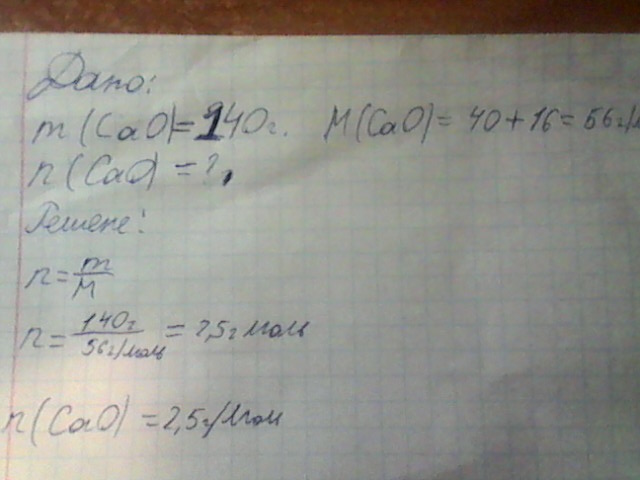 Дано:
m (CaO) = 140г. M(CaO) = 40+16 = 56г/м
n (CaO) = ?,
Решене:
n = m/M
n = 140г/56г/моль = 2,5г моль
n(CaO) = 2,5г/Моль